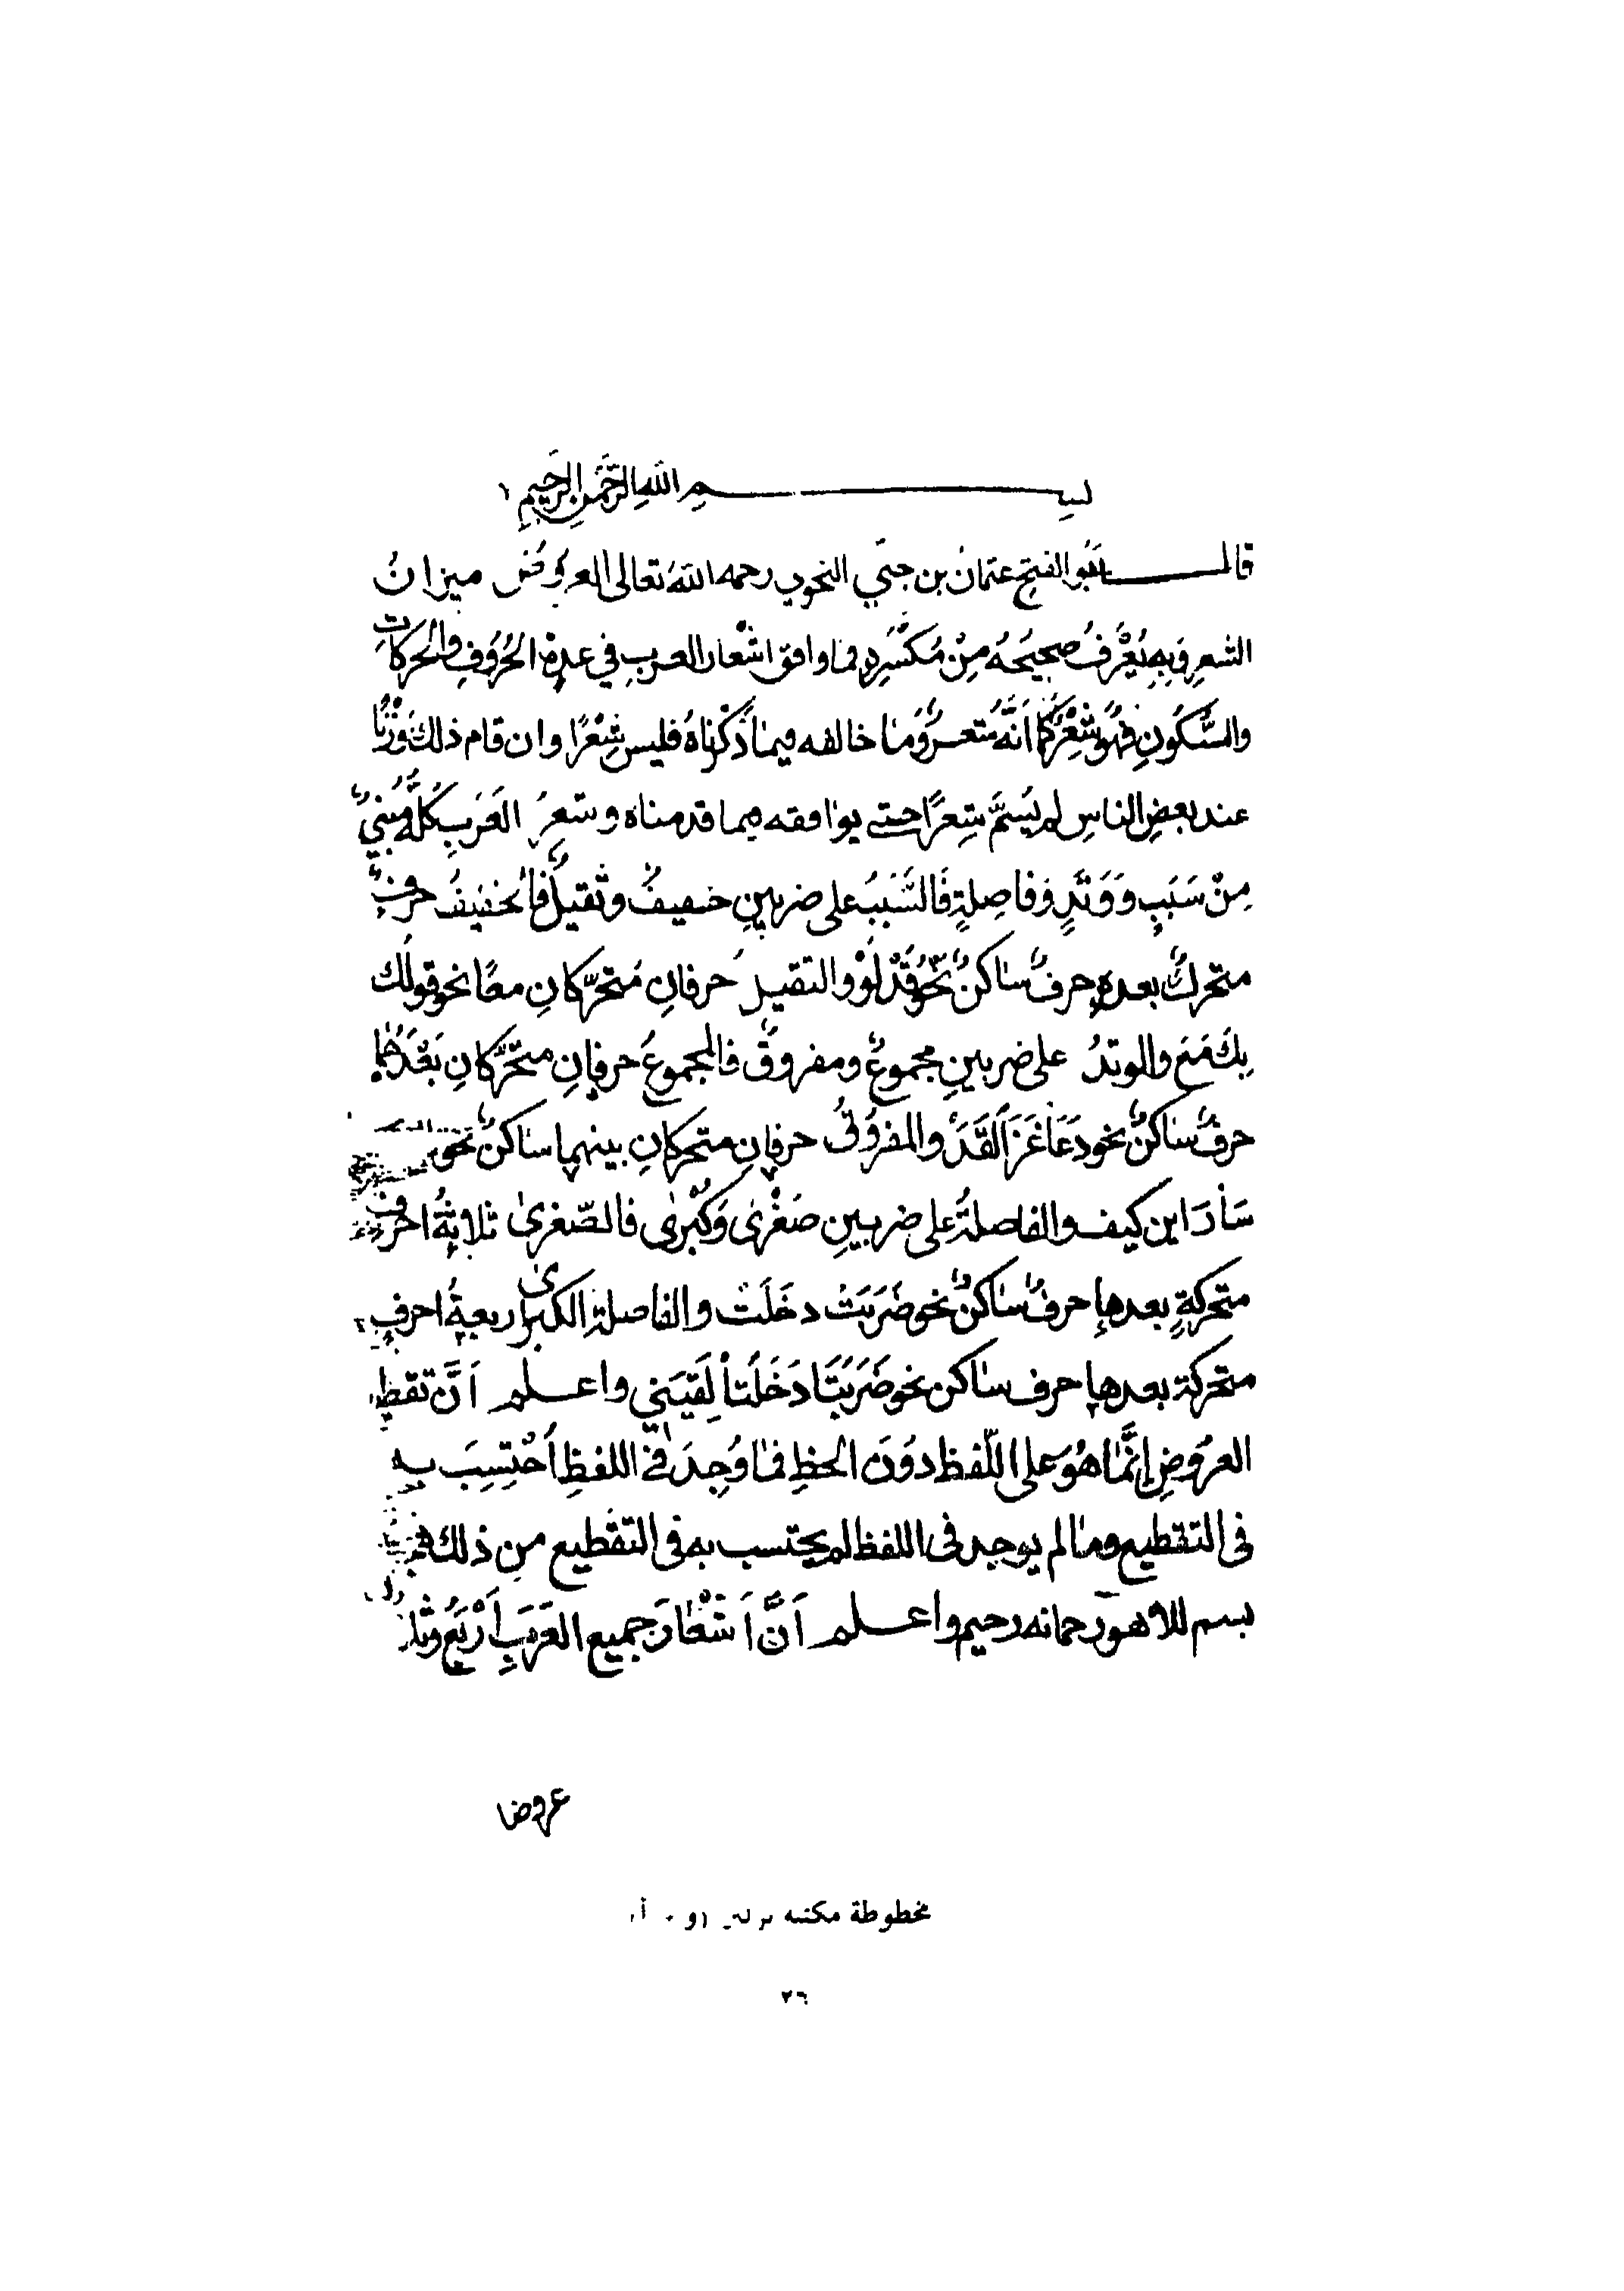 بسم الله الرحمن الرحيم
قال أبو الفتح عثمان بن جني النحوي رحمه الله تعالى العروض ميزان
الشعر وبه يُعْرَفُ صحيحُه مِنْ مُكسَّرِه فما وافق اشعار العرب في عدة الحُرُوفِ والحركات
والسُّكُونِ فهُو شِعْرٌ وما خالفه فيما ذكرْناهُ فليس شِعْرًا وان قام ذلك وَزْنًا
عند بعض الناسِ لم يُسَمَّ شِعرًا حتى يوافقه فيما قدمناه وشعرُ العَرَبِ كلُّه مَبْنيٌّ
مِنْ سَبَبٍ وَوَتَدٍ وَفاصِلةٍ فَالسَّبَبُ على ضربينِ خفيفٌ وثقيلٌ فالخفيفُ حرفٌ
متحركٌ بعده حرفٌ ساكنٌ نحوُ قَدْ لَوْ والثقيلُ حرفانِ مُتحرّكانِ معًا نحو قولك
بِكَ مَعَ والوتدُ على ضربينِ مجموعٌ ومفروقٌ فالمجموعُ حرفانِ متحرّكانِ بَعْدَهُما
حرفٌ ساكنٌ نحو دَعَا غَزَا لَقَدْ والمفرُوقُ حرفانِ متحركانِ بينهما ساكنٌ نحو
سَارَ اين كيف والفاصلةُ على ضربينِ صُغْرَى وَكُبْرى فالصّغرىٰ ثلاثةُ احرفٍ
متحركةٍ بعدها حرفٌ ساكنٌ نحو ضَرَبَتْ دخَلَتْ والفاصلة الكبرىٰ اربعةُ احرفٍ
متحركة بعدها حرف ساكن نحو ضَرَبَتَا دَخَلَتَا لَقِيَني واعلم اَنَّ تقطيع
العرُوضِ إنَّمَا هُوَ على اللّفظ دوُنَ الخطِ فما وُجِدَ في اللفظِ اُحْتِسِبَ به
فى التقطيع وما لم يوجد فى اللفظ لم يحتسب به فى التقطيع من ذلك
بسم للاهر رحمانر رحيم واعلم اَنَّ اَشْعَارَ جميع العَرَبِ اَرْبَعٌ وثلاثون
عروضا
مخطوطة مكتبة برلين
٢٦